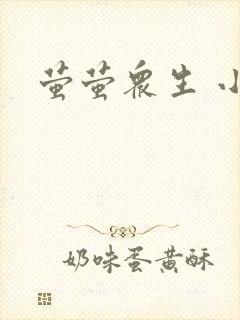 萤萤众生 小
奶味蛋黄酥